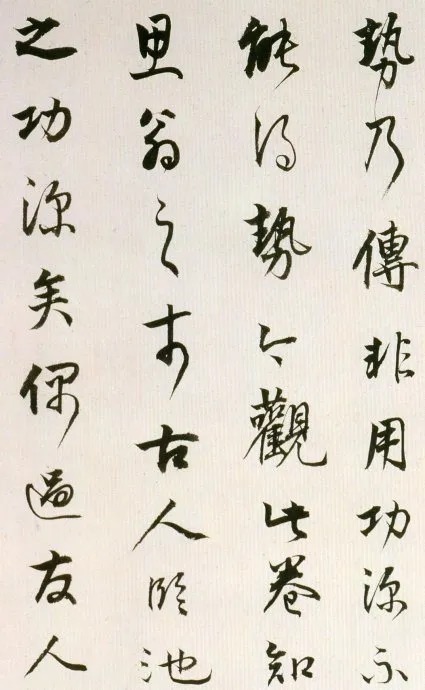 勢乃傳非用功深不
能得勢今觀此卷知
思翁之於古人臨池
之功深矣偶過友人